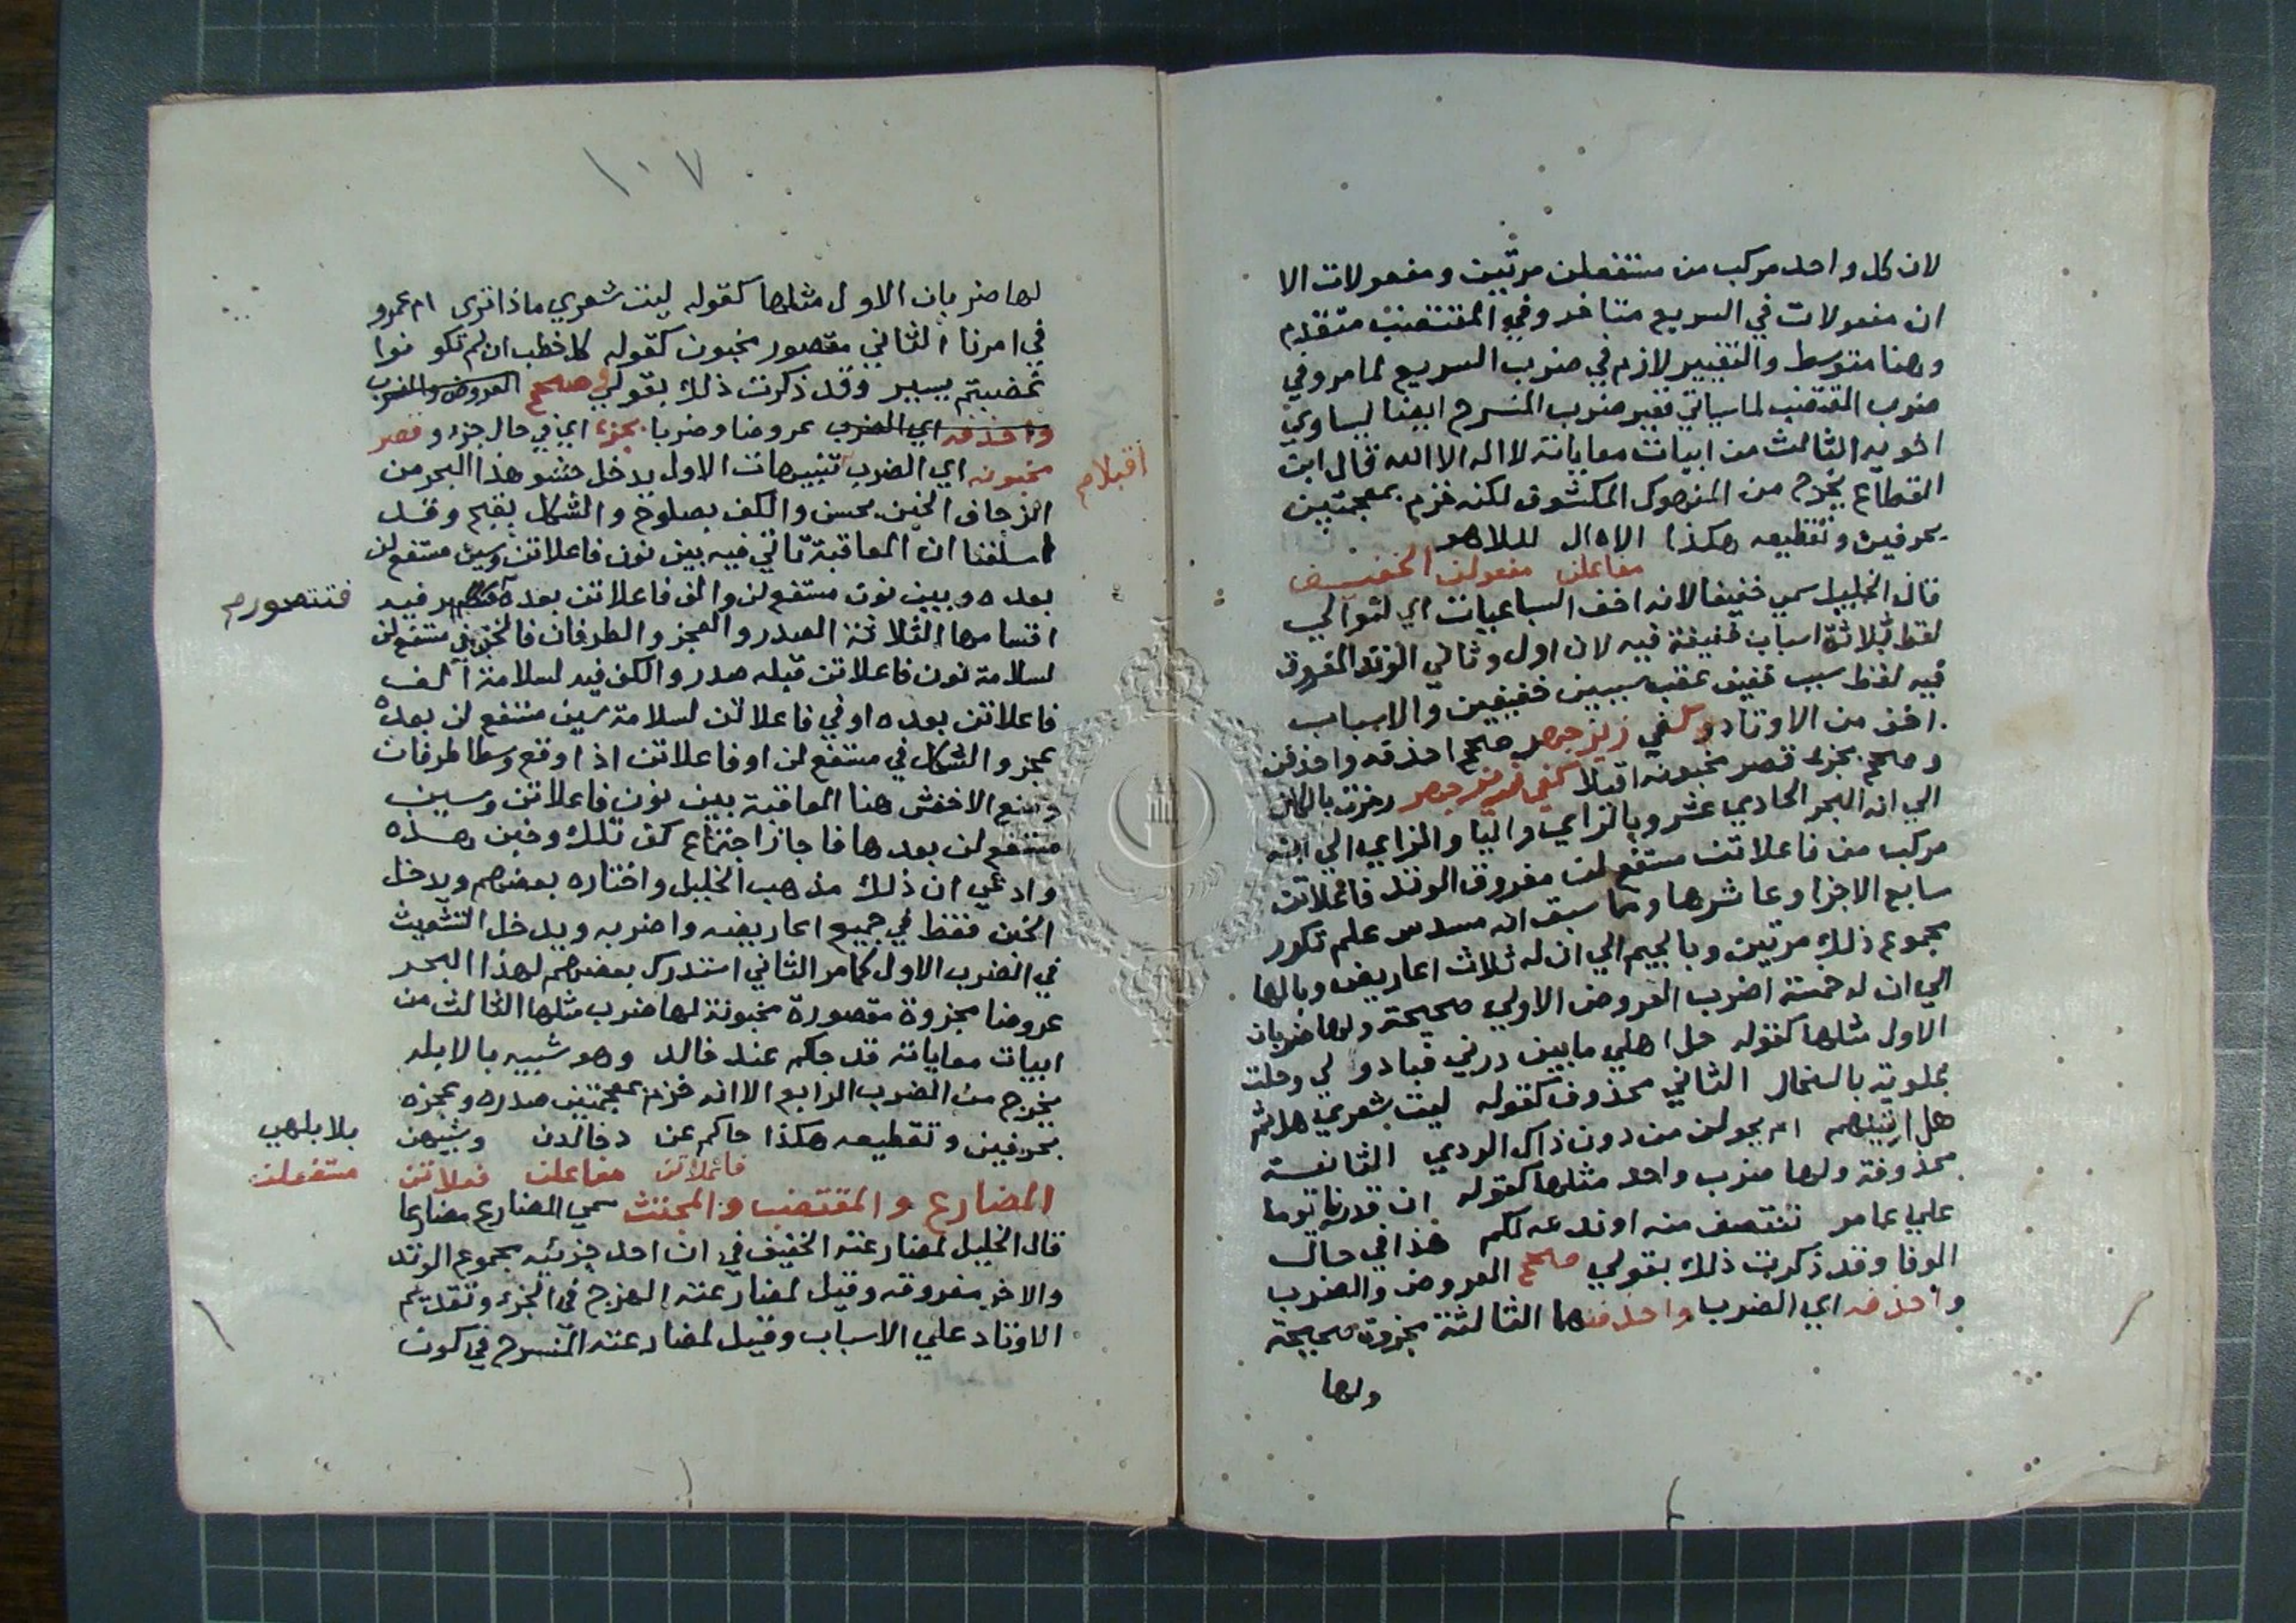 لان كل واحد مركب من مستفعلن مرتين ومفعولات الا
ان مفعولات في السريع متاخر وفي المقتضب متقدم
وهنا متوسط والتغيير لازم في ضرب السريع لما مر وفي
ضرب المقتضب لما سياتي فغير ضرب المنسرح ايضا ليساوي
اخويه الثالث من ابيات معاياته لا اله الا الله قال ابن
القطاع يخرج من المنهوك المكشوف لكنه خزم بمعجمتين
بحرفين وتقطيعه هكذا الاه ال للاهو
مفاعلن مفعولن الخفيف
قال الخليل سمي خفيفا لانه اخف السباعيات اي لتوالي
لفظ ثلاثة اسباب خفيفة فيه لان اول وثاني الوتد المفروق
فيه لفظ سبب خفيف عقب سببين خفيفين والاسباب
اخف من الاوتاد وكفي زيز جهر صحح احذفه واحذفن
وصحح بجزء قصر مخبونه اقبلا كفي زيز جهر رمزت بالكاف
الي انه البحر الحادي عشر وبالزاي واليا والزاي الي انه
مركب من فاعلاتن مستفع لن مفروق الوتد فاعلاتن
سابع الاجزا وعاشرها ومما سبق انه مسدس علم تكرر
مجموع ذلك مرتين وبالجيم الي ان له ثلاث اعاريض وبالها
الي ان له خمسة اضرب العروض الاولي صحيحة ولها ضربان
الاول مثلها كقوله حل اهلي ما بين درني فبادو لي وحلت
علوية بالسخال الثاني محذوف كقوله ليت شعري هل ثم
هل اتينهم ام يحولن من دون ذاك الردي الثانية
محذوفة ولها ضرب واحد مثلها كقوله ان قدرنا يوما
علي عامر ننتصف منه او ندعه لكم هذا في حال
الوفا وقد ذكرت ذلك بقولي صحح العروض والضرب
واحذفه اي الضرب واحذفنهما الثالثة مجزوة صحيحة
ولها
١٠٧
لها ضربان الاول مثلها كقوله ليت شعري ماذا تري ام عمرو
في امرنا الثاني مقصور مخبون كقوله كل خطب ان لم تكو نوا
غضبتم يسير وقد ذكرت ذلك بقولي وصحح العروض والضرب
واحذفه اي الضرب عروضا وضربا بجزء اي في حال جزء وقصر
مخبونه اي الضرب تنبيهات الاول يدخل حشو هذا البحر من
اقبلام
الزحاف الخبن بحسن والكف بصلوح والشكل بقبح وقد
اسلفنا ان المعاقبة تاتي فيه بين نون فاعلاتن وسين مستفع لن
بعده وبين نون مستفع لن والف فاعلاتن بعده فيه
فتتصورم
اقسامها الثلاثة الصدر والعجز والطرفان فالخبن في مستفع لن
لسلامة نون فاعلاتن قبله صدر والكف فيه لسلامة الف
فاعلاتن بعده او في فاعلاتن لسلامة سين مستفع لن بعده
عجز والشكل في مستفع لن او فاعلاتن اذا وقع وسطا طرفان
ومنع الاخفش هنا المعاقبة بين نون فاعلاتن وسين
مستفع لن بعدها فاجاز اجتماع كف تلك وخبن هذه
وادعي ان ذلك مذهب الخليل واختاره بعضهم ويدخل
الخبن فقط في جميع اعاريضه واضربه ويدخل التشعيث
في الضرب الاول كما مر الثاني استدرك بعضهم لهذا البحر
عروضا مجزوة مقصورة مخبونة لها ضرب مثلها الثالث من
ابيات معاياته قد جاكم عند خالد وهو شبيه بالابله
يخرج من الضرب الرابع الا انه خزم بمعجمتين صدره وعجزه
بحرفين وتقطيعه هكذا جاكم عن دخالدن وشبيهن
بلابلهي
فاعلاتن مفاعلن فعلاتن
متفعلن
المضارع والمقتضب والمجتث سمي المضارع مضارعا
قال الخليل لمضارعته الخفيف في ان احد جزئيه مجموع الوتد
والاخر مفروقه وقيل لمضارعته الهزج في الجزء وتقديم
الاوتاد علي الاسباب وقيل لمضارعته المنسرح في كون